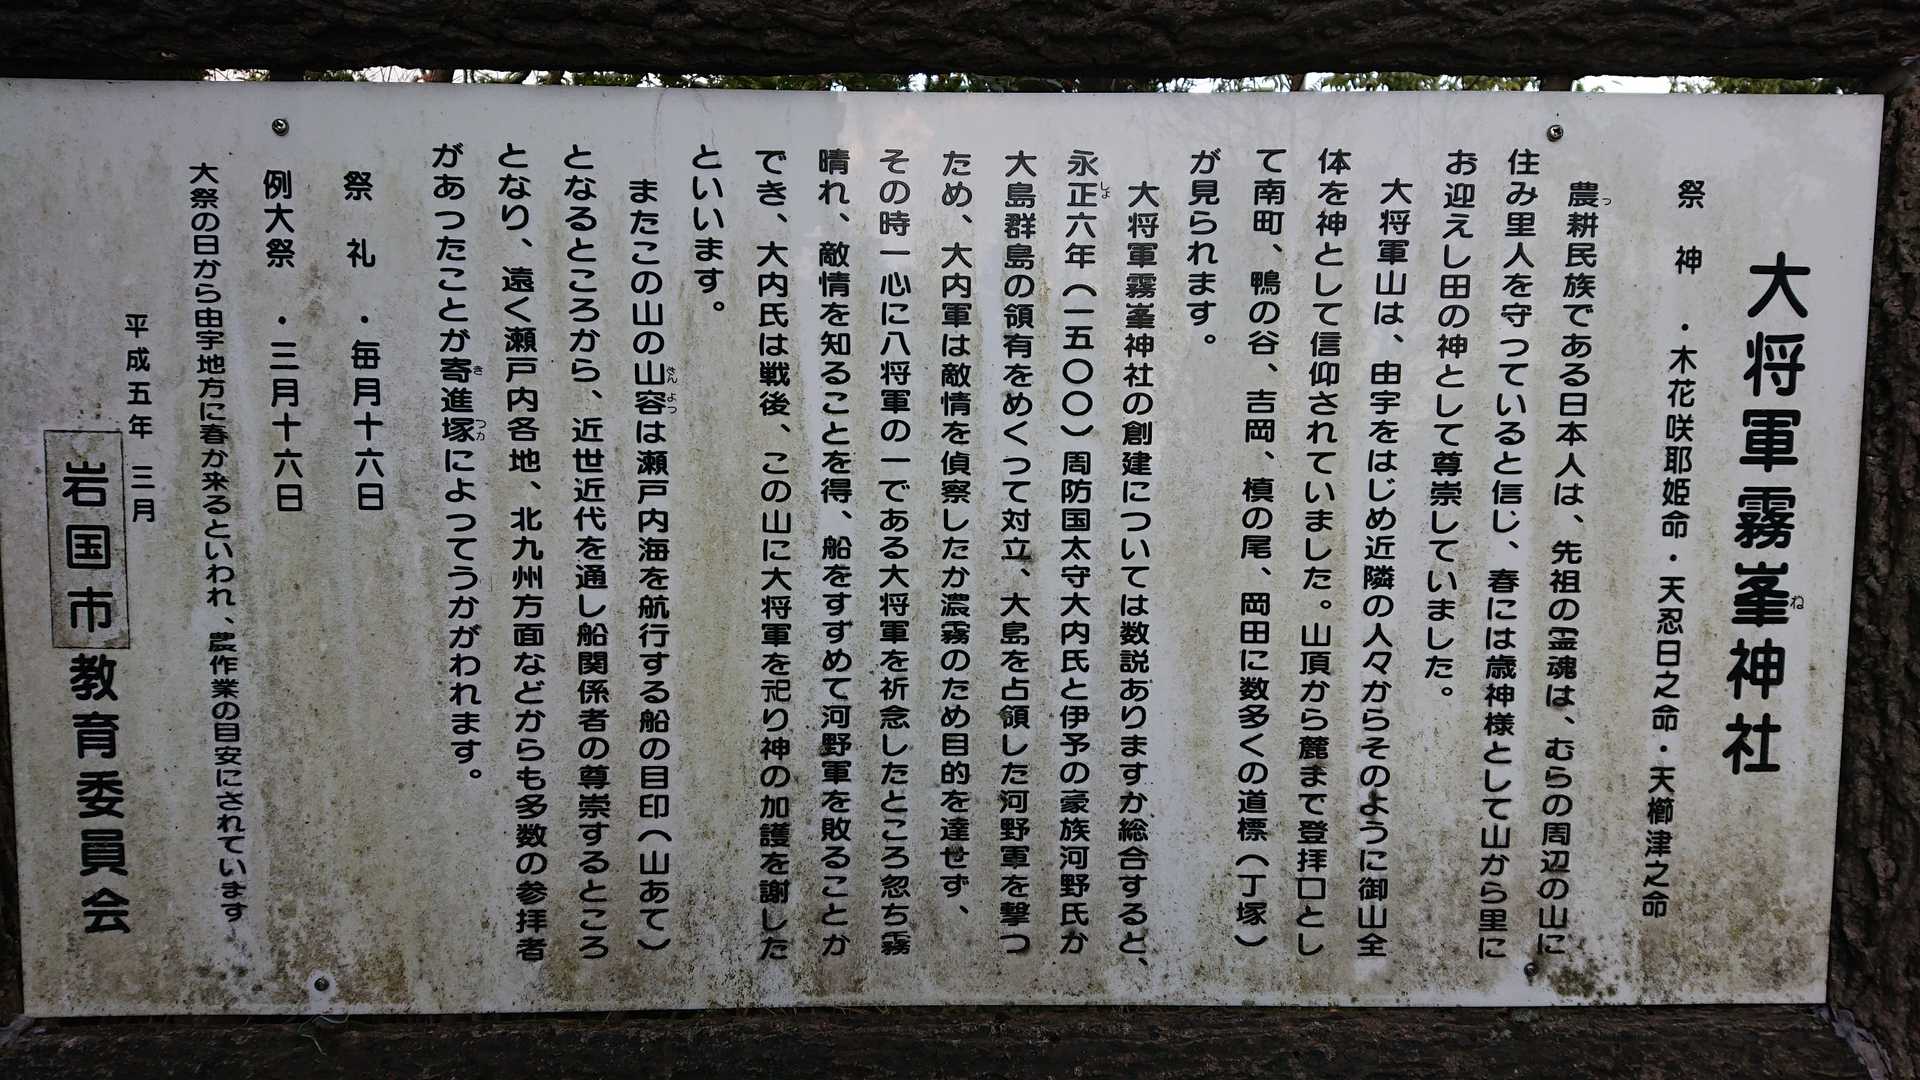 大将軍霧峯神社
祭神・木花咲耶姫命・天忍日之命・天櫛津之命
農耕民族である日本人は、先祖の霊魂は、むらの周辺の山に
住み里人を守っていると信じ、春には歳神様として山から里に
お迎えし田の神として尊崇していました。
大将軍山は、由宇をはじめ近隣の人々からそのように御山全
体を神として信仰されていました。山頂から麓まで登拝口とし
て南町、鴨の谷、吉岡、槙の尾、岡田に数多くの道標（丁塚）
が見られます。
大将軍霧峯神社の創建については数説ありますが総合すると、
永正六年（一五〇〇）周防国太守大内氏と伊予の豪族河野氏が
大島群島の領有をめぐって対立、大島を占領した河野軍を撃つ
ため、大内軍は敵情を偵察したが濃霧のため目的を達せず、
その時一心に八将軍の一である大将軍を祈念したところ忽ち霧
晴れ、敵情を知ることを得、船をすすめて河野軍を敗ることが
でき、大内氏は戦後、この山に大将軍を祀り神の加護を謝した
といいます。
またこの山の山容は瀬戸内海を航行する船の目印（山あて）
となるところから、近世近代を通し船関係者の尊崇するところ
となり、遠く瀬戸内各地、北九州方面などからも多数の参拝者
があったことが寄進塚によってうかがわれます。
祭礼・毎月十六日
例大祭・三月十六日
大祭の日から由宇地方に春が来るといわれ、農作業の目安にされています
平成五年三月
岩国市教育委員会